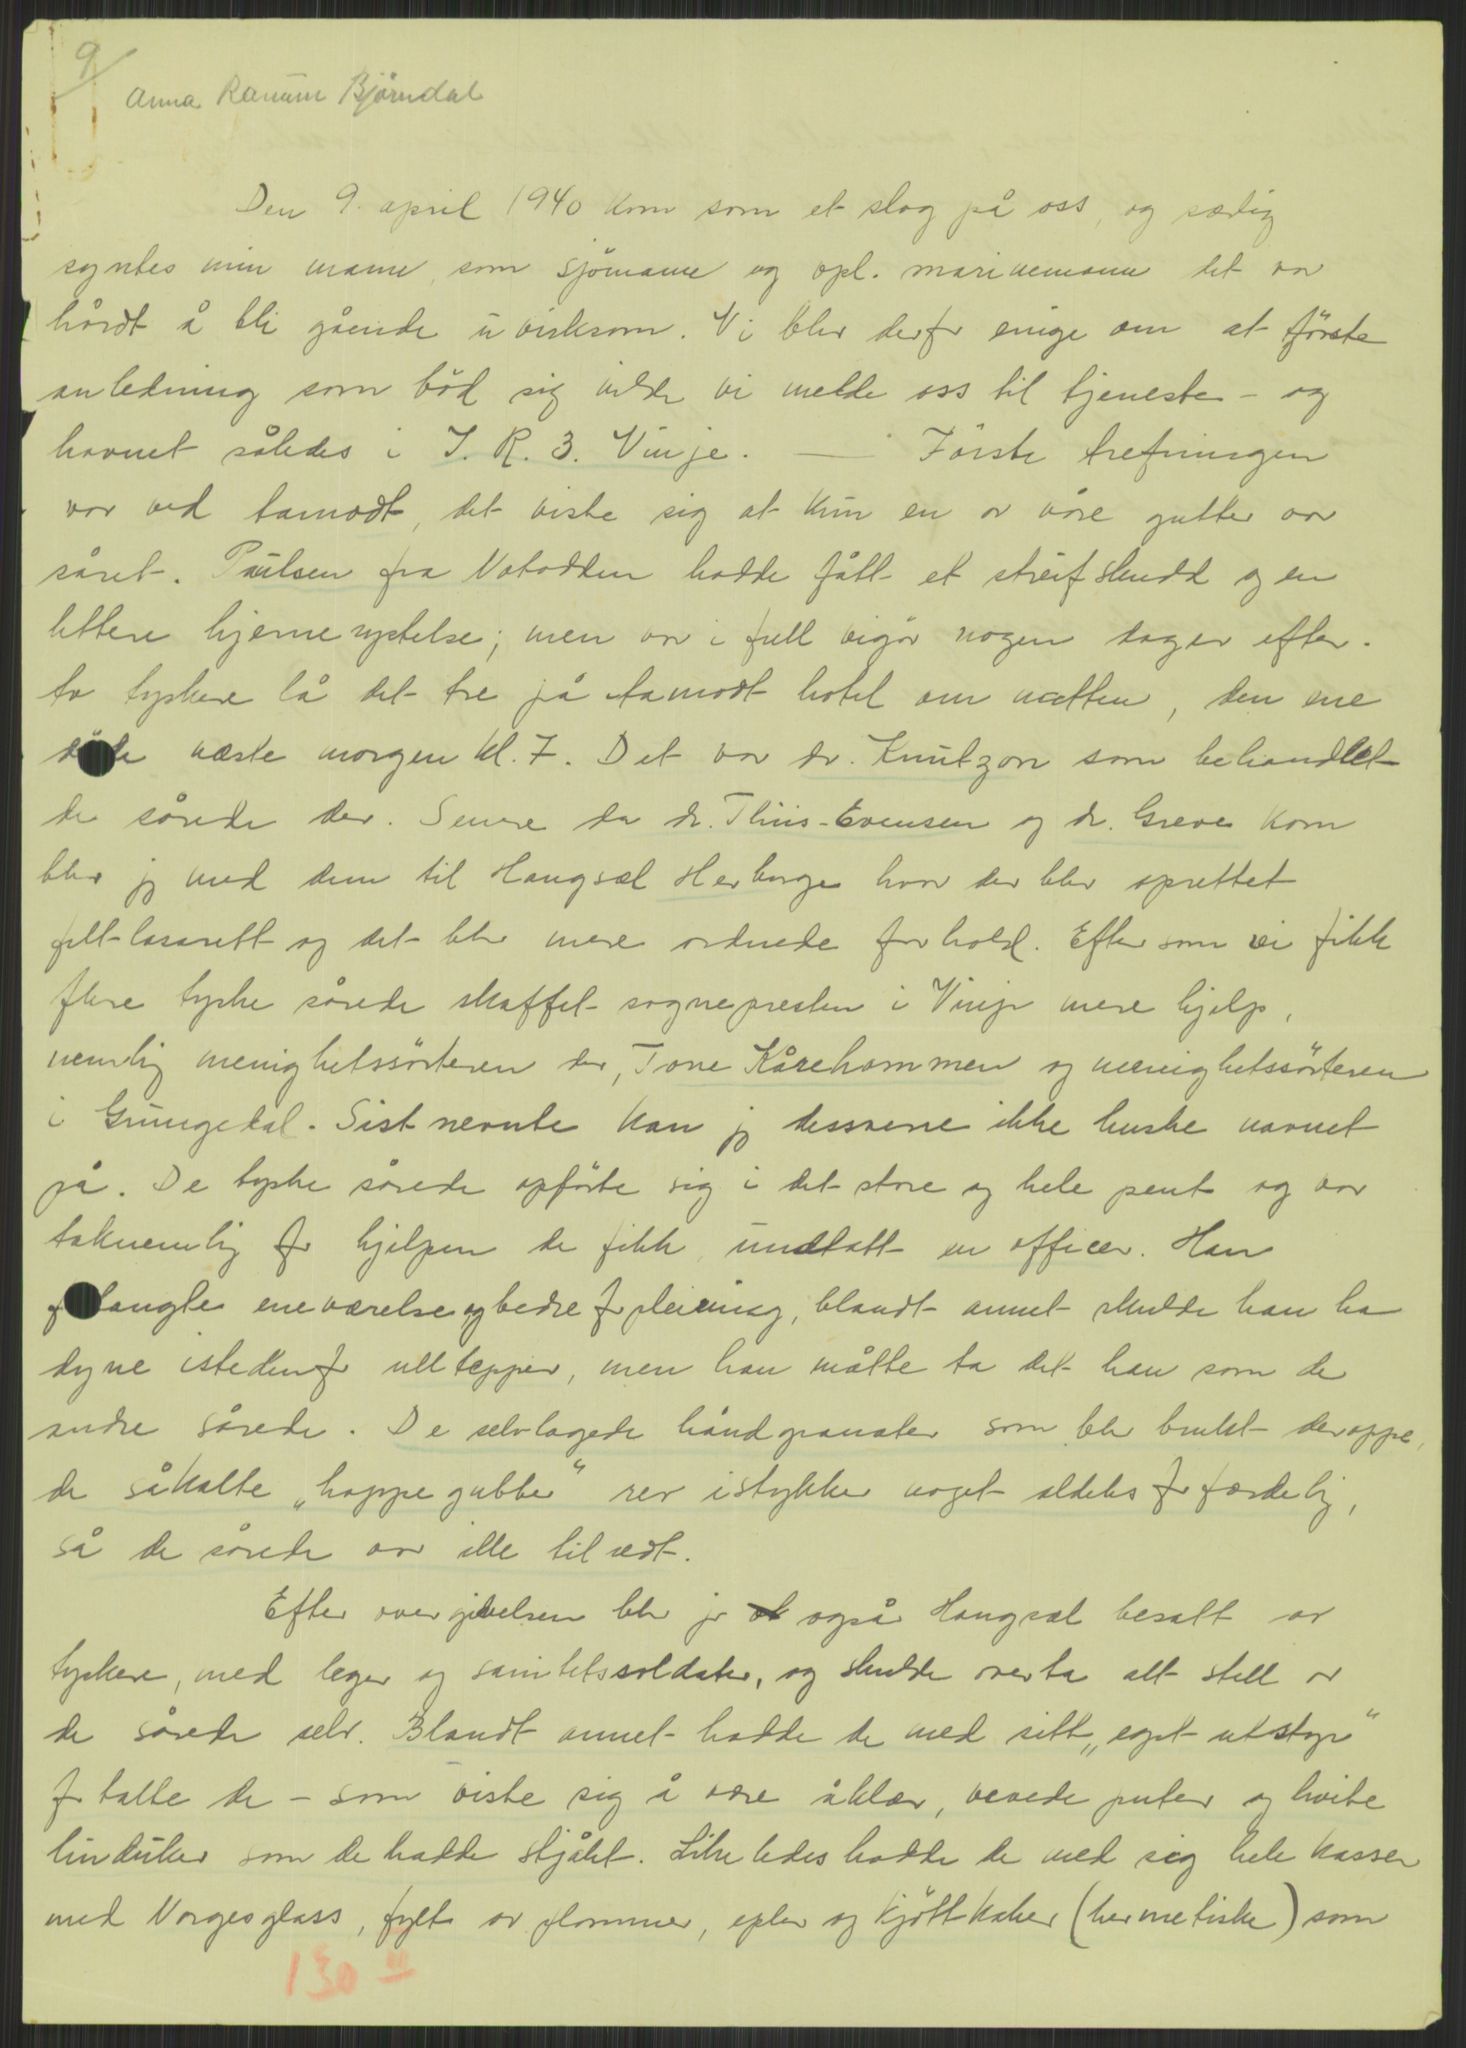 9/
Anna Ranum Björndal
Den 9. april 1940 kom som et slag på oss, og særlig
syntes min mann, som sjömann og opl. marinemann det var
hårdt å bli gående uvirksom. Vi blev derfor enige om at förste
anledning som böd sig vilde vi melde oss til tjeneste - og
havnet således i I. R. 3. Vinje. — Förste trefningen
var ved Åamodt, det viste sig at kun en av våre gutter var
såret. Paulsen fra Notodden hadde fått et streifskudd og en
lettere hjernerystelse; men var i full vigör nogen dager efter.
Av tyskere lå det tre på Åamodt hotel om natten, den ene
döde næste morgen kl. 7. Det var dr. Knutzon som behandlet
de sårede der. Senere da dr. Thiis-Evensen og dr. Greve kom
blev jeg med dem til Haugsæl Herberge hvor der blev oprettet
felt-lasarett og det blev mere ordnede forhold. Eftersom vi fikk
flere tyske sårede skaffet sognepresten i Vinje mere hjelp,
nemlig menighetssösteren der, Tone Kårehommen og menighetssösteren
i Grungedal. Sistnevnte kan jeg dessverre ikke huske navnet
på. De tyske sårede opförte sig i det store og hele pent og var
taknemlig for hjelpen de fikk, undtatt en officer. Han
forlangte eneværelse og bedre forpleining, blandt annet skulde han ha
dyne istedenfor ulltepper, men han måtte ta det han som de
andre sårede. De selvlagede håndgranater som blev brukt deroppe,
de såkalte „hoppegubber" rev istykker noget aldeles forfærdelig,
så de sårede var ille tilredt.
Efter overgivelsen blev jo også Haugsæl besatt av
tyskere, med leger og sanitetssoldater, og skulde overta alt stell av
de sårede selv. Blandt annet hadde de med sitt „eget utstyr"
fortalte de - som viste sig å være åklær, vevede puter og hvite
linduker som de hadde stjålet. Likeledes hadde de med sig hele kasser
med Norgesglass, fylt av plommer, epler og kjöttkaker (hermetiske) som
130